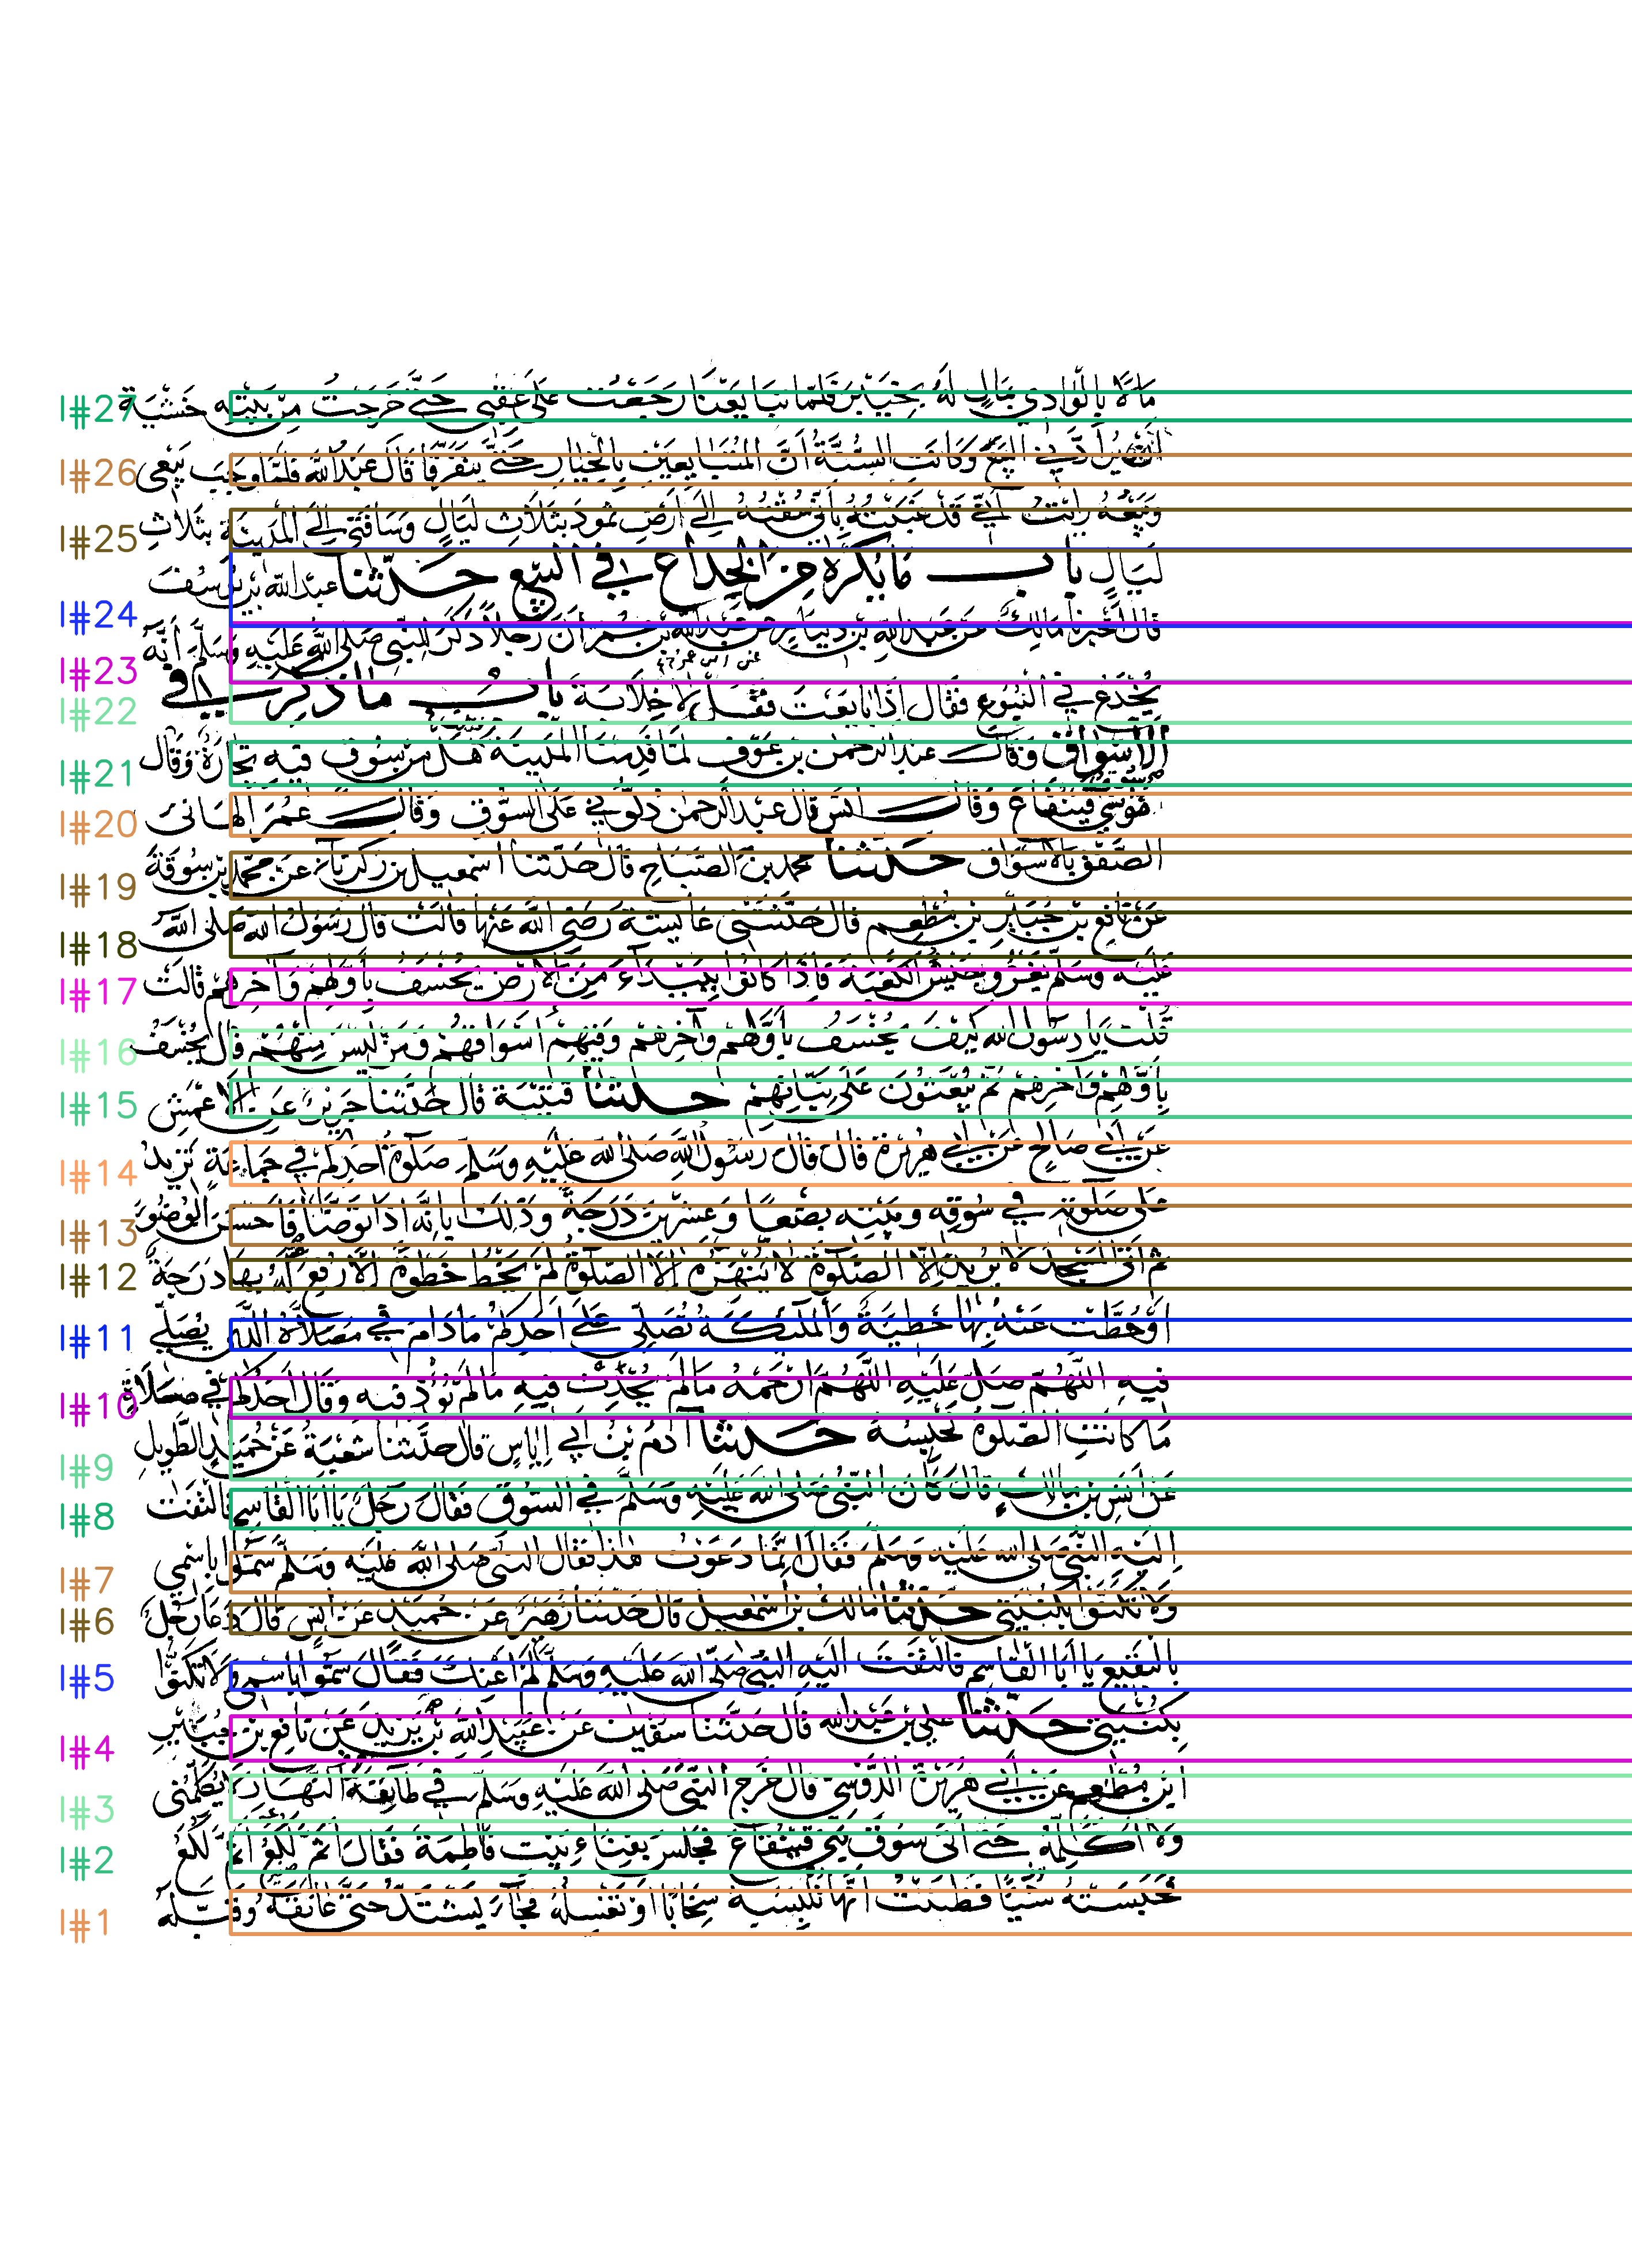 مَالًا بِالْوَادِي بِمَالٍ لَهُ بِخَيْبَرَ فَلَمَّا تَبَايَعْنَا رَجَعْتُ عَلَى عَقِبَيَّ حَتَّى خَرَجْتُ مِنْ بَيْتِهِ خَشْيَةَ
I#27
فِي الْبَيْعِ وَكَانَتِ السُّنَّةُ أَنَّ الْمُتَبَايِعَيْنِ بِالْخِيَارِ حَتَّى يَتَفَرَّقَا قَالَ عَبْدُ اللَّهِ فَلَمَّا وَجَبَ بَيْعِي
I#26
وَبَيْعُهُ رَأَيْتُ أَنِّي قَدْ غَبَنْتُهُ بِأَنِّي سُقْتُهُ إِلَى أَرْضِ ثَمُودَ بِثَلَاثِ لَيَالٍ وَسَاقَنِي إِلَى الْمَدِينَةِ بِثَلَاثِ
I#25
لَيَالٍ بَابُ مَا يُكْرَهُ مِنَ الْخِدَاعِ فِي الْبَيْعِ حَدَّثَنَا عبد الله بن يوسف
I#24
قَالَ أَخْبَرَنَا مَالِكٌ عَنْ عَبْدِ اللَّهِ بْنِ دِينَارٍ عَنْ عَبْدِ اللَّهِ بْنِ عُمَرَ أَنَّ رَجُلًا ذَكَرَ لِلنَّبِيِّ صَلَّى اللَّهُ عَلَيْهِ وَسَلَّمَ أَنَّهُ
I#23
يُخْدَعُ فِي الْبُيُوعِ فَقَالَ إِذَا بَايَعْتَ فَقُلْ لَا خِلَابَةَ بَابُ مَا ذُكِرَ فِي
I#22
الْأَسْوَاقِ وَقَالَ عَبْدُ الرَّحْمَنِ بْنُ عَوْفٍ لَمَّا قَدِمْنَا الْمَدِينَةَ هَلْ مِنْ سُوقٍ فِيهِ تِجَارَةٌ وَقَالَ
I#21
قَيْنُقَاعَ وَقَالَ أَنَسٌ قَالَ عَبْدُ الرَّحْمَنِ دُلُّونِي عَلَى السُّوقِ وَقَالَ عُمَرُ أَلْهَانِي
I#20
الصَّفْقُ بِالْأَسْوَاقِ حَدَّثَنَا محمد بن الصَّبَّاحِ قَالَ حَدَّثَنَا إِسْمَعِيلُ بْنُ زَكَرِيَّاءَ عَنْ مُحَمَّدِ بْنِ سُوقَةَ
I#19
عَنْ نَافِعِ بْنِ جُبَيْرِ بْنِ مُطْعِمٍ قَالَ حَدَّثَتْنِي عَائِشَةُ رَضِيَ اللَّهُ عَنْهَا قَالَتْ قَالَ رَسُولُ اللَّهِ صَلَّى اللَّهُ
I#18
عَلَيْهِ وَسَلَّمَ يَغْزُو جَيْشٌ الْكَعْبَةَ فَإِذَا كَانُوا بِبَيْدَاءَ مِنَ الْأَرْضِ يُخْسَفُ بِأَوَّلِهِمْ وَآخِرِهِمْ قَالَتْ
I#17
قُلْتُ يَا رَسُولَ اللَّهِ كَيْفَ يُخْسَفُ بِأَوَّلِهِمْ وَآخِرِهِمْ وَفِيهِمْ أَسْوَاقُهُمْ وَمَنْ لَيْسَ مِنْهُمْ قَالَ يُخْسَفُ
I#16
بِأَوَّلِهِمْ وَآخِرِهِمْ ثُمَّ يُبْعَثُونَ عَلَى نِيَّاتِهِمْ حَدَّثَنَا قُتَيْبَةُ قَالَ حَدَّثَنَا جَرِيرٌ عَنِ الْأَعْمَشِ
I#15
عَنْ أَبِي صَالِحٍ عَنْ أَبِي هُرَيْرَةَ قَالَ قَالَ رَسُولُ اللَّهِ صَلَّى اللَّهُ عَلَيْهِ وَسَلَّمَ صَلَوةُ أَحَدِكُمْ فِي جَمَاعَةٍ تَزِيدُ
I#14
عَلَى صَلَوتِهِ فِي سُوقِهِ وَبَيْتِهِ بِضْعًا وَعِشْرِينَ دَرَجَةً وَذَلِكَ بِأَنَّهُ إِذَا تَوَضَّأَ فَأَحْسَنَ الْوُضُوءَ
I#13
ثُمَّ أَتَى الْمَسْجِدَ لَا يُرِيدُ إِلَّا الصَّلَوةَ لَا يَنْهَزُهُ إِلَّا الصَّلَوةُ لَمْ يَخْطُ خَطْوَةً إِلَّا رُفِعَ لَهُ بِهَا دَرَجَةً
I#12
أَوْ حُطَّتْ عَنْهُ بِهَا خَطِيئَةٌ وَالْمَلَئِكَةُ تُصَلِّي عَلَى أَحَدِكُمْ مَا دَامَ فِي مُصَلَّاهُ الَّذِي يُصَلِّي
I#11
فِيهِ اللَّهُمَّ صَلِّ عَلَيْهِ اللَّهُمَّ ارْحَمْهُ مَا لَمْ يُحْدِثْ فِيهِ مَا لَمْ يُؤْذِ فِيهِ وَقَالَ أَحَدُكُمْ فِي صَلَاةٍ
I#10
مَا كَانَتِ الصَّلَوةُ تَحْبِسُهُ حَدَّثَنَا آدَمُ بْنُ أَبِي إِيَاسٍ قَالَ حَدَّثَنَا شُعْبَةُ عَنْ حُمَيْدٍ الطَّوِيلِ
I#9
عَنْ أَنَسِ بْنِ مَالِكٍ قَالَ كَانَ النَّبِيُّ صَلَّى اللَّهُ عَلَيْهِ وَسَلَّمَ فِي السُّوقِ فَقَالَ رَجُلٌ يَا أَبَا الْقَاسِمِ فَالْتَفَتَ
I#8
إِلَيْهِ النَّبِيُّ صَلَّى اللَّهُ عَلَيْهِ وَسَلَّمَ فَقَالَ إِنَّمَا دَعَوْتُ هَذَا فَقَالَ النَّبِيُّ صَلَّى اللَّهُ عَلَيْهِ وَسَلَّمَ سَمُّوا بِاسْمِي
I#7
وَلَا تَكَنَّوْا بِكُنْيَتِي حَدَّثَنَا مَالِكُ بْنُ إِسْمَعِيلَ قَالَ حَدَّثَنَا زُهَيْرٌ عَنْ حُمَيْدٍ عَنْ أَنَسٍ قَالَ دَعَا رَجُلٌ
I#6
بِالْبَقِيعِ يَا أَبَا الْقَاسِمِ فَالْتَفَتَ إِلَيْهِ النَّبِيُّ صَلَّى اللَّهُ عَلَيْهِ وَسَلَّمَ لَمْ أَعْنِكَ فَقَالَ سَمُّوا بِاسْمِي وَلَا تَكَنَّوْا
I#5
بِكُنْيَتِي حَدَّثَنَا عَلِيُّ بْنُ عَبْدِ اللَّهِ قَالَ حَدَّثَنَا سُفْيَنُ عَنْ عُبَيْدِ اللَّهِ بْنِ يَزِيدَ عَنْ نَافِعِ بْنِ جُبَيْرِ
I#4
ابْنِ مُطْعِمٍ عَنْ أَبِي هُرَيْرَةَ الدَّوْسِيِّ قَالَ خَرَجَ النَّبِيُّ صَلَّى اللَّهُ عَلَيْهِ وَسَلَّمَ فِي طَائِفَةِ النَّهَارِ لَا يُكَلِّمُنِي
I#3
وَلَا أُكَلِّمُهُ حَتَّى أَتَى سُوقَ بَنِي قَيْنُقَاعَ فَجَلَسَ بِفِنَاءِ بَيْتِ فَاطِمَةَ فَقَالَ أَثَمَّ لُكَعُ أَثَمَّ لُكَعُ
I#2
فَحَبَسَتْهُ شَيْئًا فَظَنَنْتُ أَنَّهَا تُلْبِسُهُ سِخَابًا أَوْ تُغَسِّلُهُ فَجَاءَ يَشْتَدُّ حَتَّى عَانَقَهُ وَقَبَّلَهُ
I#1